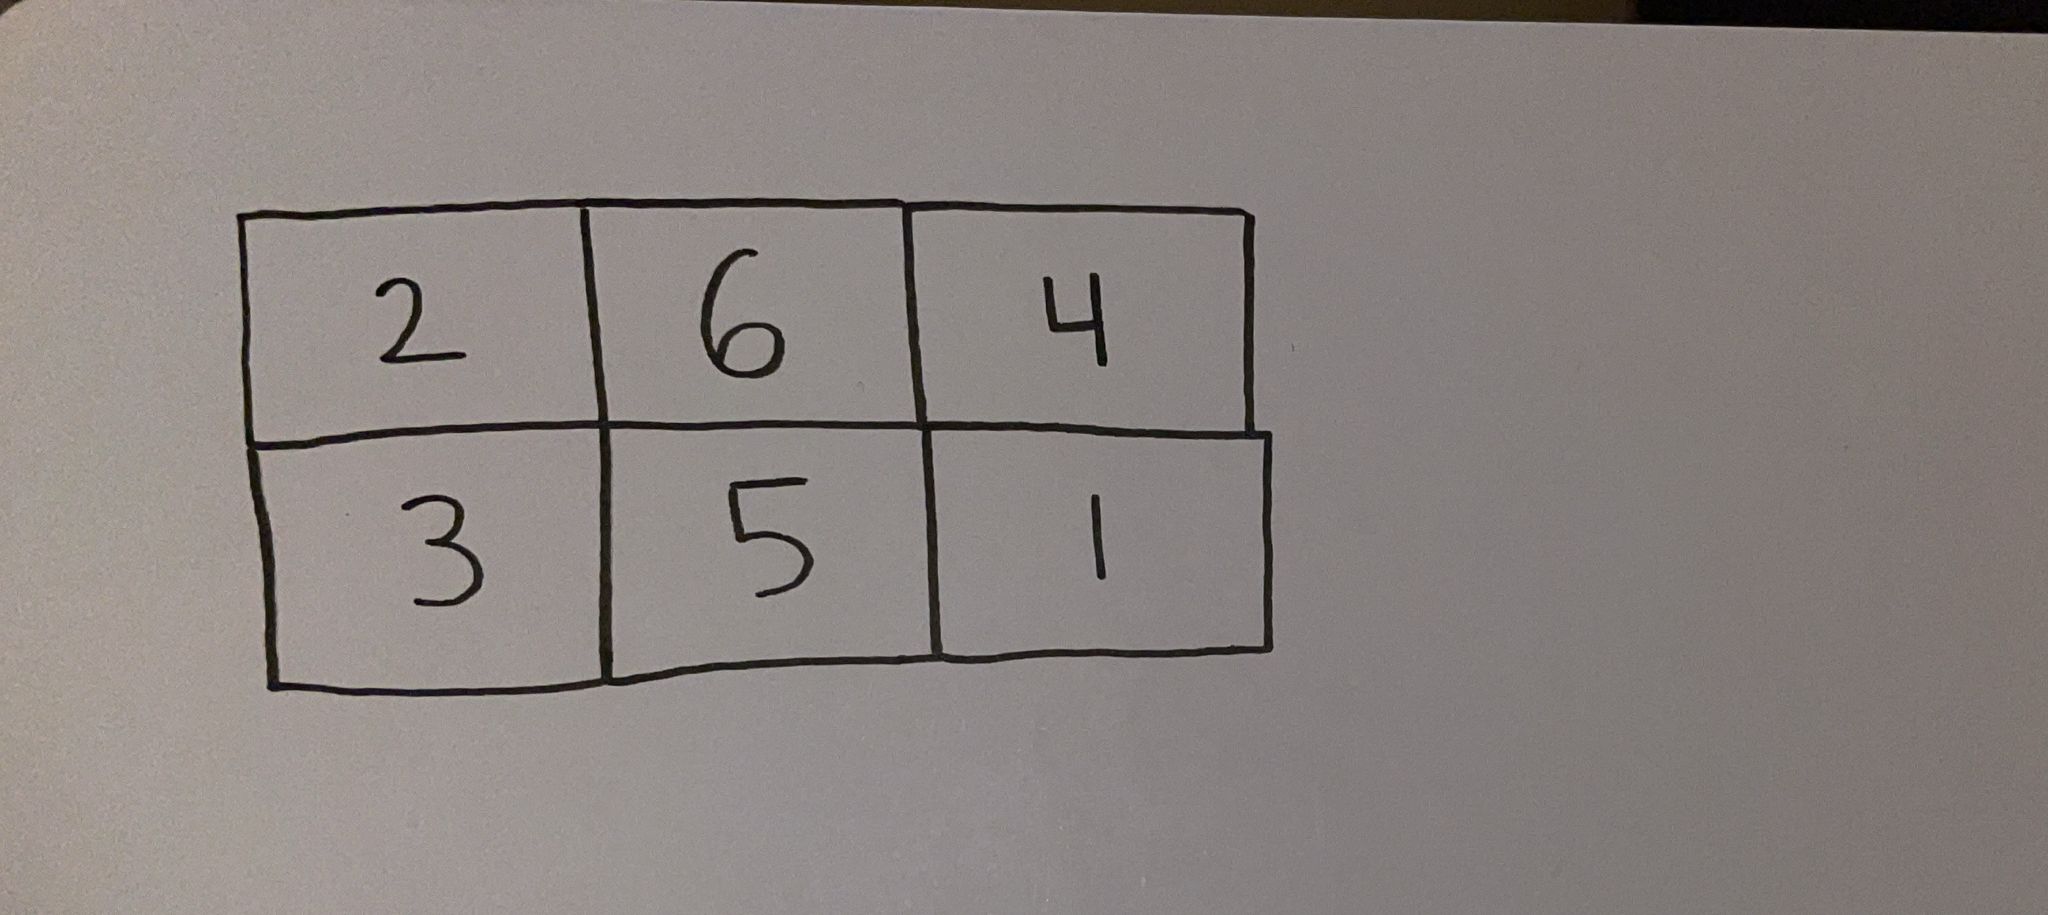 2 6 4
3 5 1